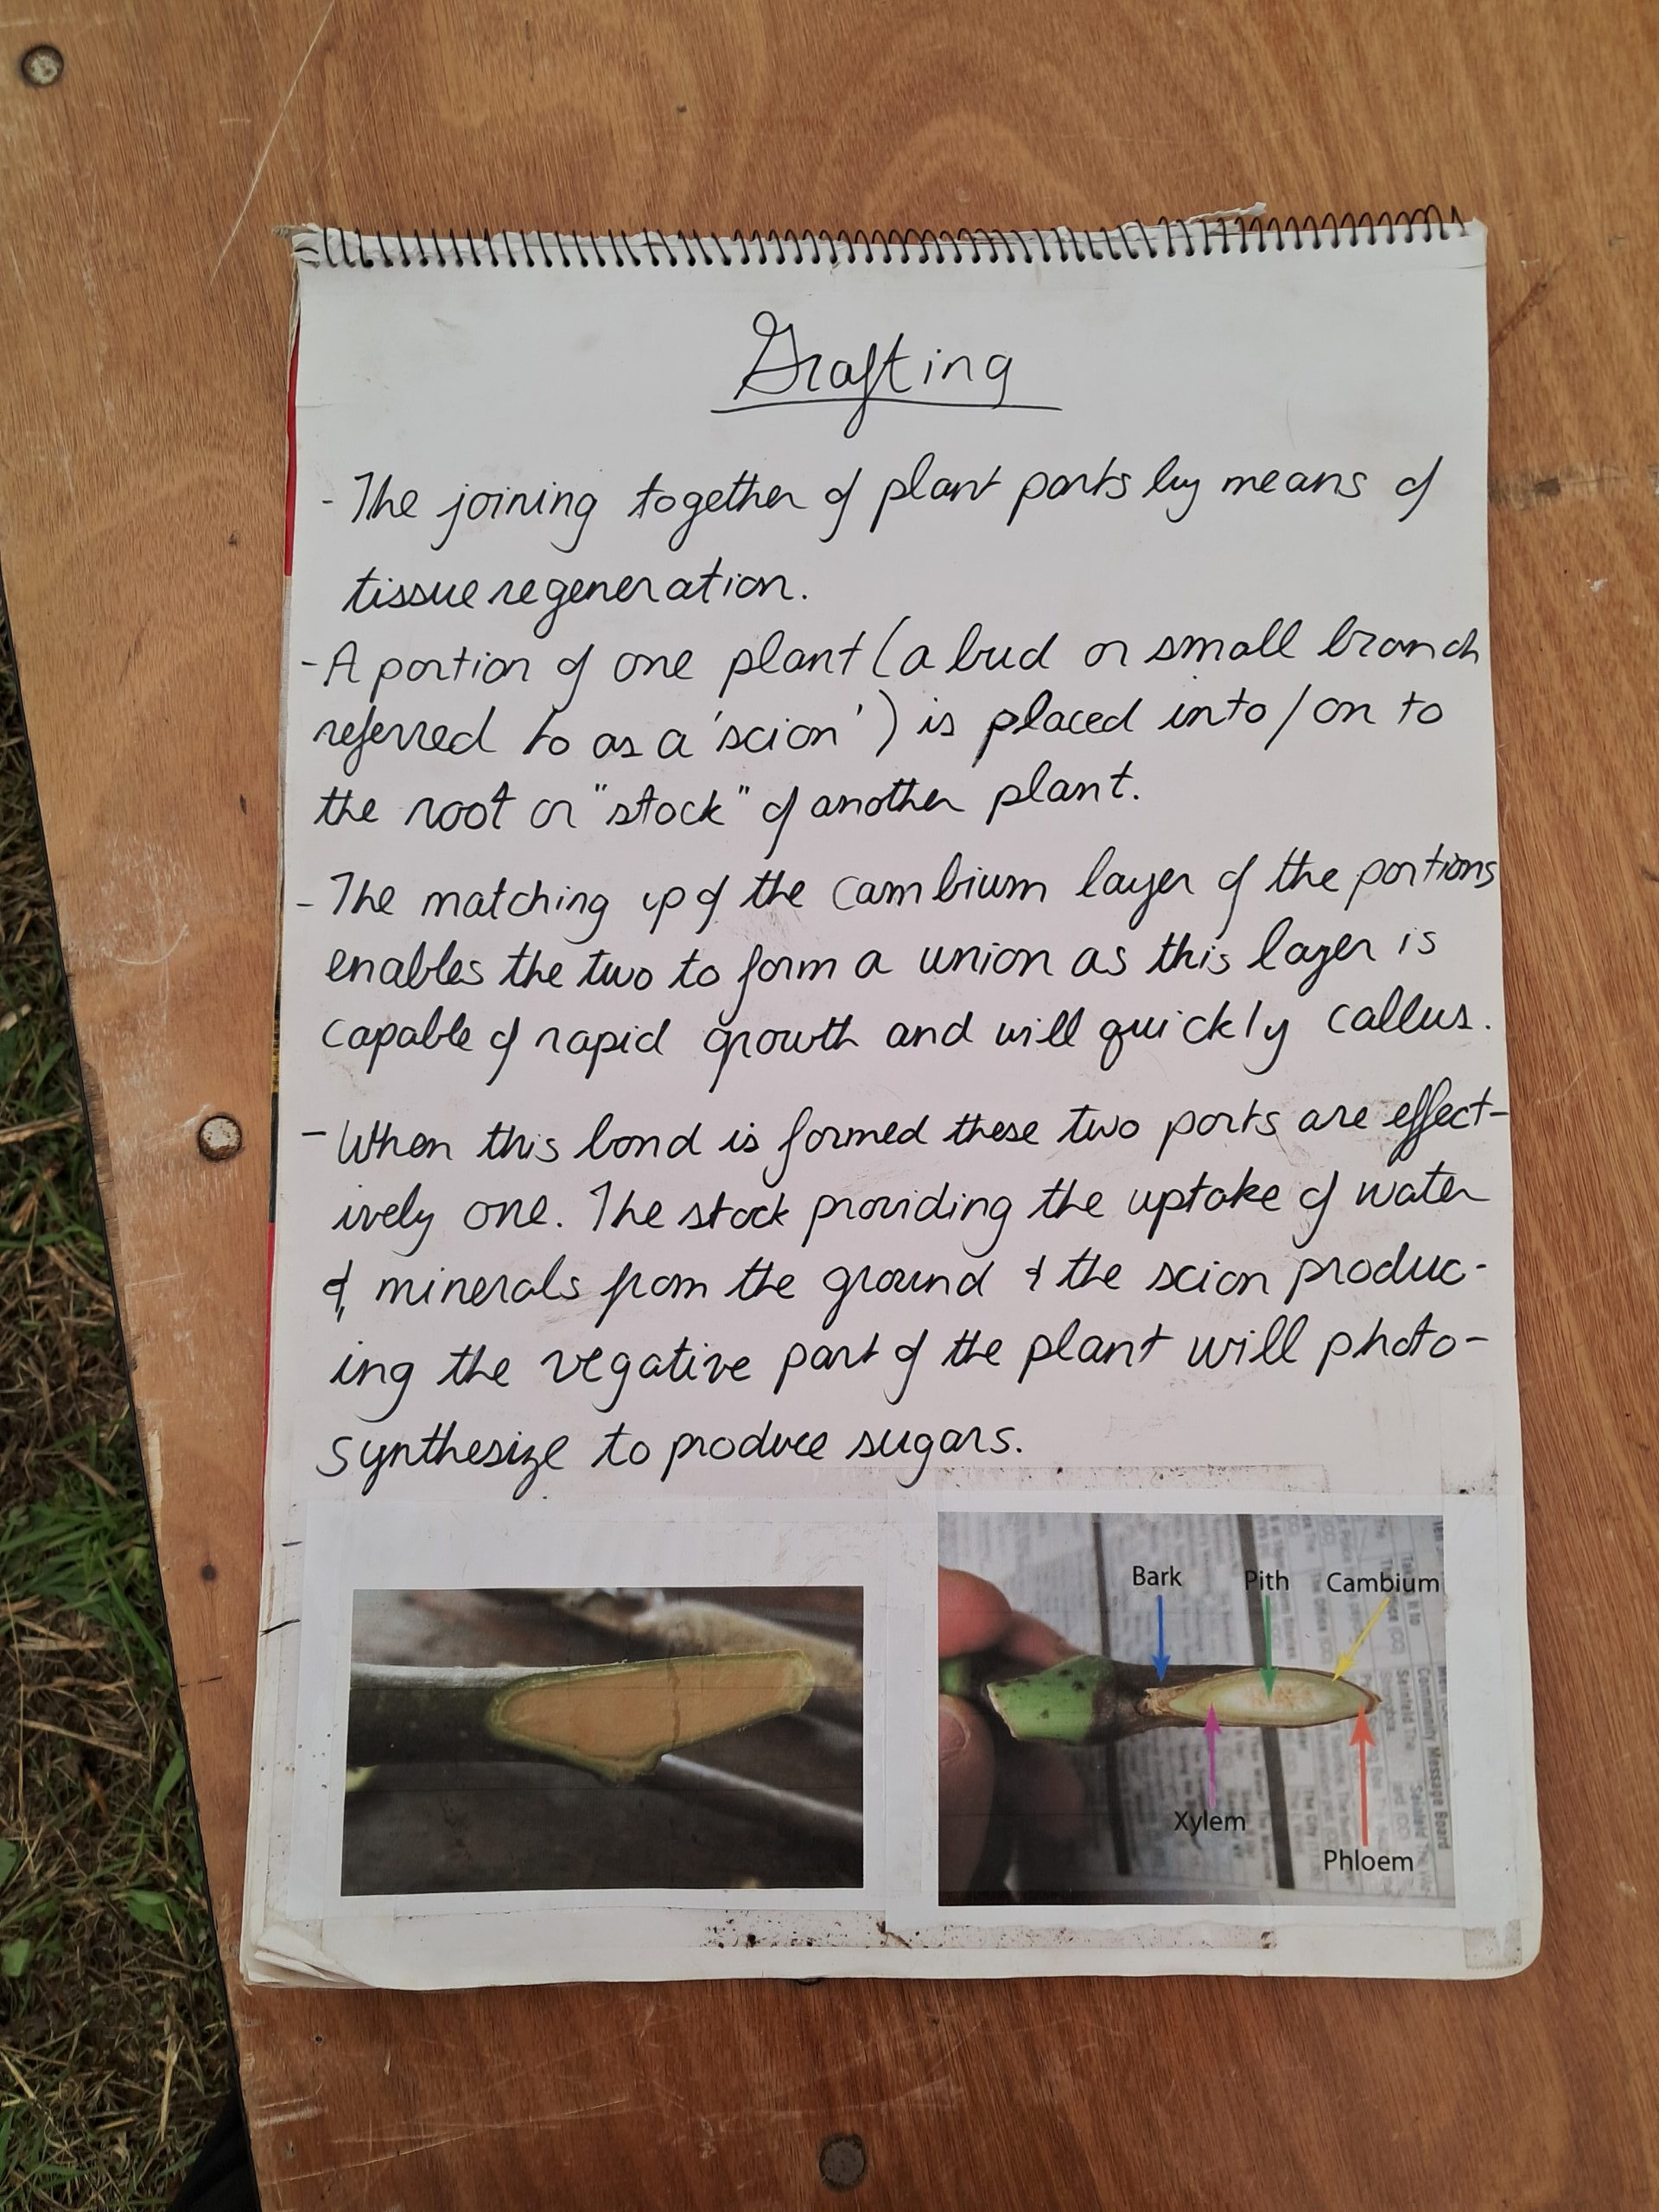 Grafting
- The joining together of plant parts by means of
tissue regeneration.
- A portion of one plant (a bud or small branch
referred to as a 'scion') is placed into/on to
the root or "stock" of another plant.
- The matching up of the cambium layer of the portions
enables the two to form a union as this layer is
capable of rapid growth and will quickly callus.
- When this bond is formed these two parts are effect-
ively one. The stock providing the uptake of water
& minerals from the ground & the scion produc-
ing the vegative part of the plant will photo-
synthesize to produce sugars.
Bark Pith Cambium
Xylem
Phloem
Community Message Board